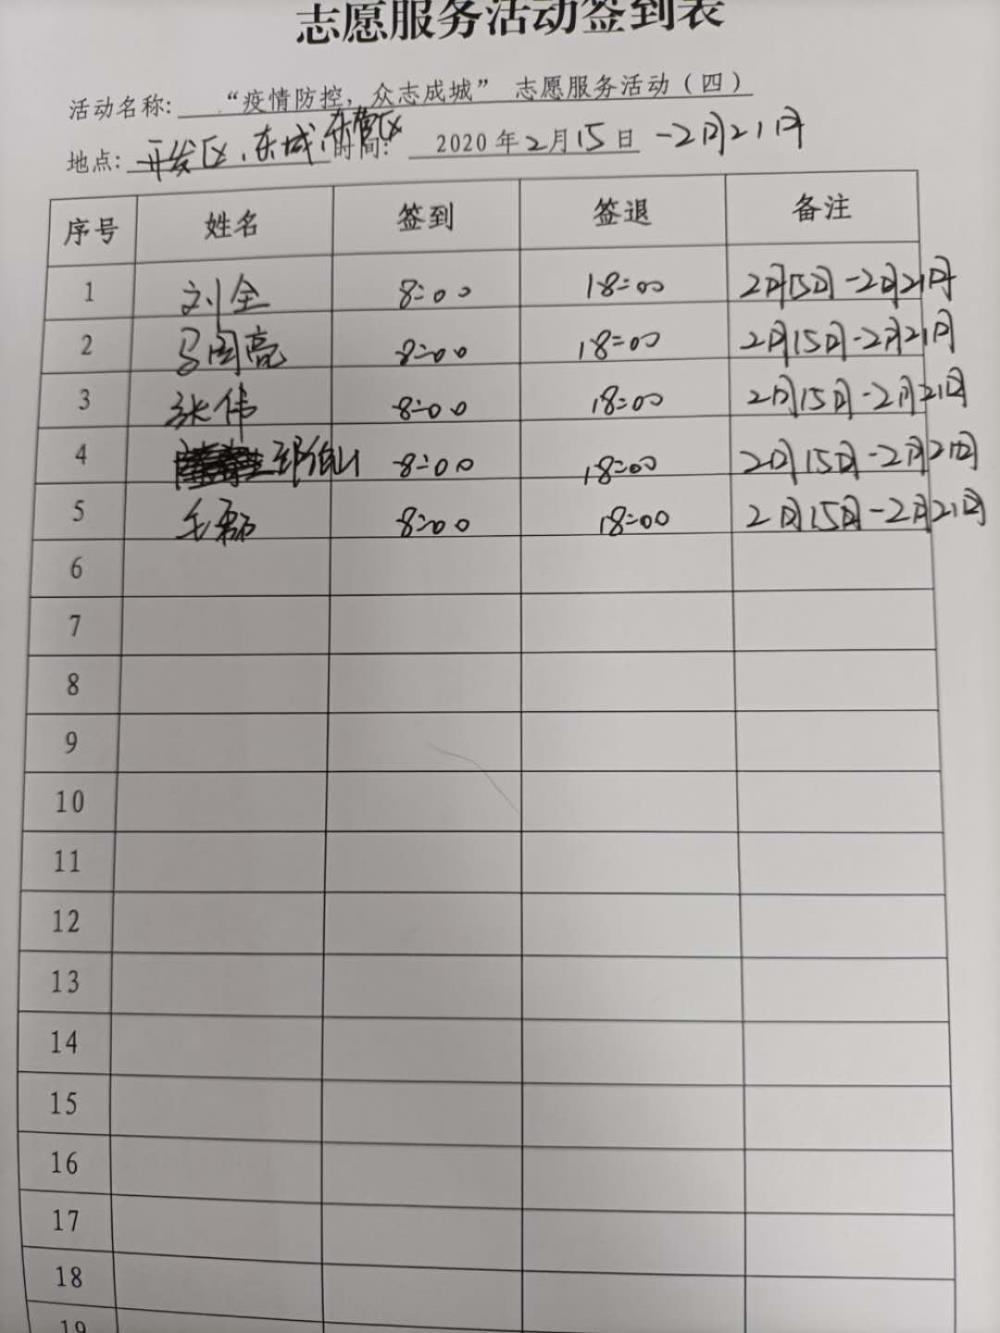 志愿服务活动签到表
活动名称: “疫情防控,众志成城” 志愿服务活动(四)
地点: 开发区、东城、东营区 时间: 2020年2月15日-2月21日
序号 姓名 签到 签退 备注
1 刘全 8:00 18:00 2月15日-2月21日
2 马国亮 8:00 18:00 2月15日-2月21日
3 张伟 8:00 18:00 2月15日-2月21日
4 8:00 18:00 2月15日-2月21日
5 毛磊 8:00 18:00 2月15日-2月21日
6
7
8
9
10
11
12
13
14
15
16
17
18
19